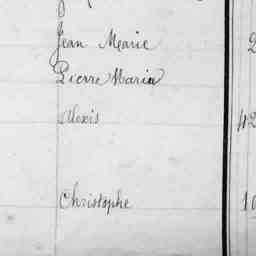 Jean Marie 2
Pierre Marie
Alexis 42
Christophe 10